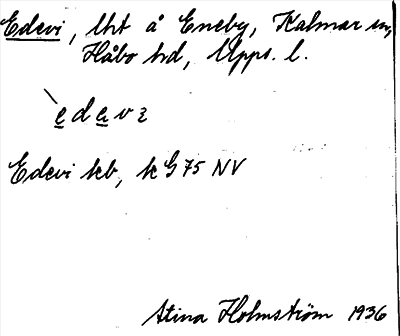 Edevi, lht å Eneby, Kalmar sn,
Håbo hd, Upps. l.
`edavɩ
Edevi kb, k G 75 NV
Stina Holmström 1936